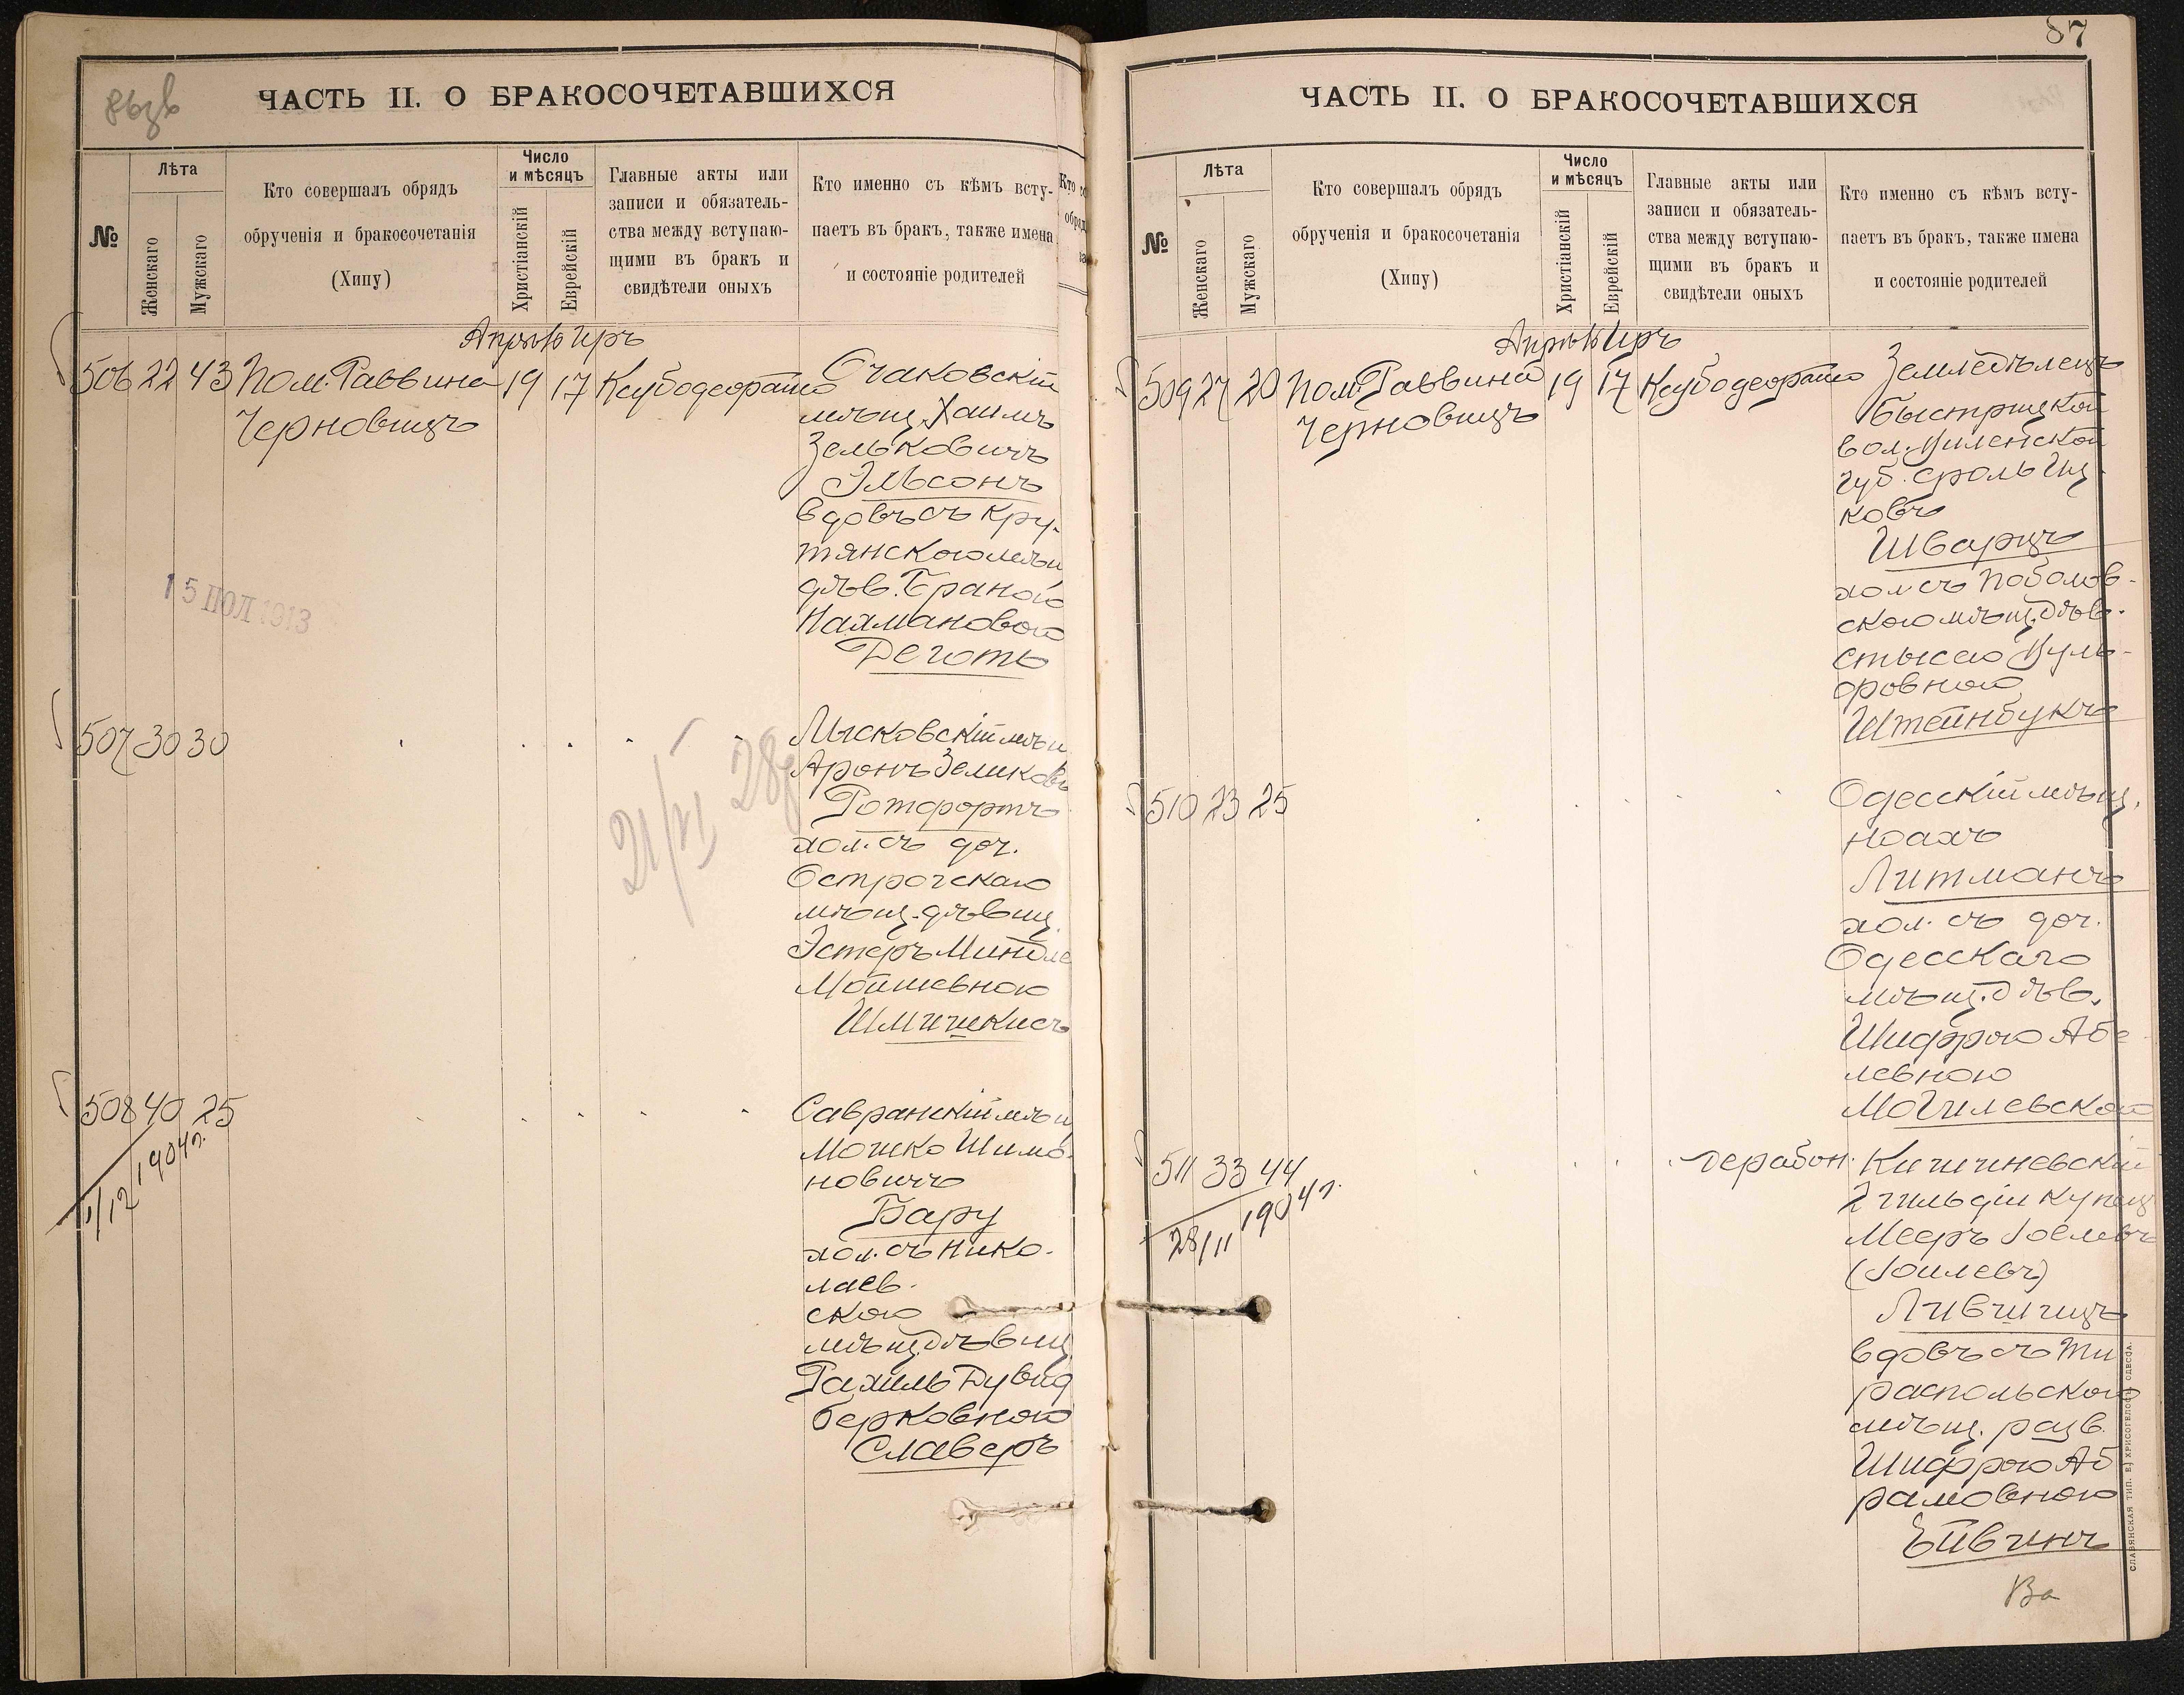 ЧАСТЬ II. О БРАКОСОЧЕТАВШИХСЯ
№
Лѣта
Женскаго
Мужскаго
Кто совершалъ обрядъ
обрученія и бракосочетанія
(Хипу)
Число
и мѣсяцъ
Христіанскій
Еврейскій
Главные акты или
записи и обязатель-
ства между вступаю-
щими въ бракъ и
свидѣтели оныхъ
Кто именно съ кѣмъ всту-
паетъ въ бракъ, также имена
и состояніе родителей
506 22 43 Пом. Раввина 19 17
Черновицъ
Очаковскій
мѣщ. Хаимъ
Зельковичъ
Эльсонъ
вдовъ съ Кру-
тянскою мѣщ
дѣв. Браною
Нахмановою
Деготь
15 ІЮЛ 1913
507 30 30
Лысковскій мѣщ
Аронъ Зеликовъ
Ротфортъ
хол. съ доч.
Острогскаго
мѣщ. дѣвиц.
Эстеръ Миндле
Мойшевною
Шмишкисъ
21/VI 28
508 40 25
1/12 1904 г.
Савранскій мѣщ
Мошко Шимо-
новичъ
Бару
хол. съ Нико-
лаев-
скою
мѣщ. дѣвиц
Рахиль Дувид
берковною
Славеръ
87
ЧАСТЬ II. О БРАКОСОЧЕТАВШИХСЯ
№
Лѣта
Женскаго
Мужскаго
Кто совершалъ обрядъ
обрученія и бракосочетанія
(Хипу)
Число
и мѣсяцъ
Христіанскій
Еврейскій
Главные акты или
записи и обязатель-
ства между вступаю-
щими въ бракъ и
свидѣтели оныхъ
Кто именно съ кѣмъ всту-
паетъ въ бракъ, также имена
и состояніе родителей
509 27 20 Пом. Раввина 19 17
Черновицъ
Земледѣлецъ
Быстрицкой
вол. Виленской
губ. Сроль Иц-
ковъ
Шварцъ
хол. съ Поболов-
скою мѣщ. дѣв.
Стысею Вуль-
фовною
Штейнбукъ
510 23 25
Одесскій мѣщ.
Ноахъ
Литманъ
хол. съ доч.
Одесскаго
мѣщ. дѣв.
Шифрою Абе-
левною
Могилевскою
511 33 44
28/11 1904 г.
Кишиневскій
2 гильдіи купец
Мееръ Іоелевъ
(Іоилевъ)
Лившицъ
вдовъ съ Ти
распольскою
мѣщ. разв.
Шифрою Аб
рамовною
Ейвинъ
СЛАВЯНСКАЯ ТИП. Е. ХРИСОГЕЛОСЪ ОДЕССА.